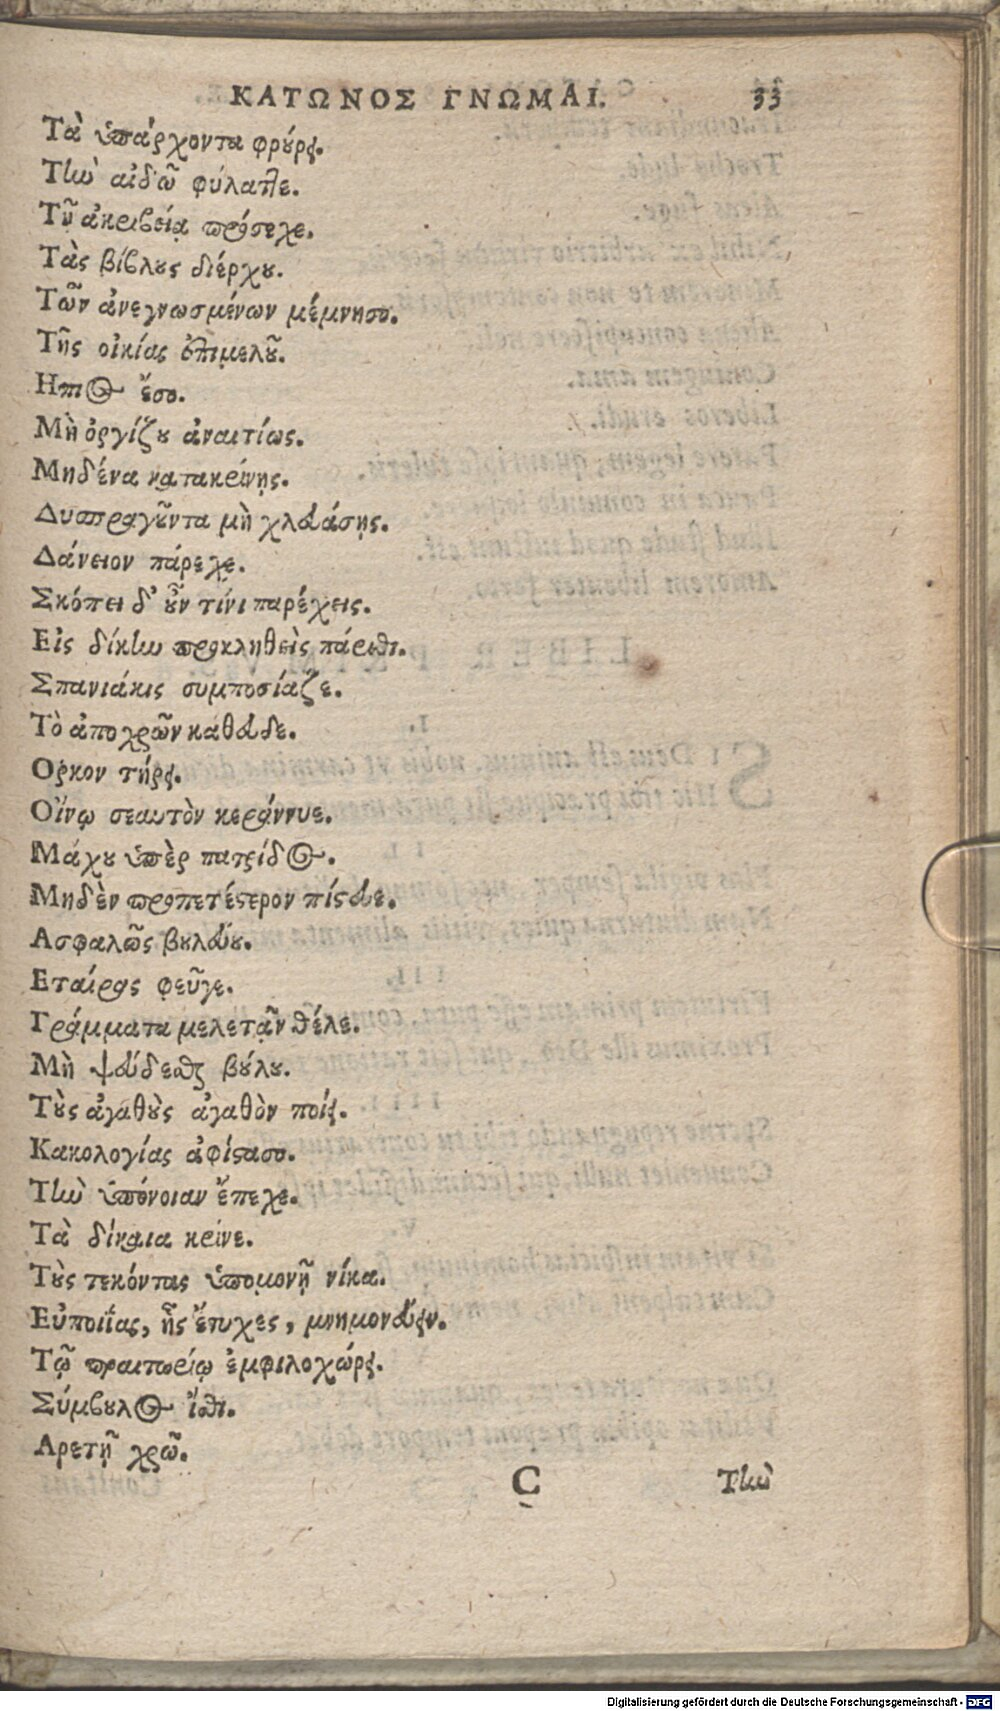 ΚΑΤΩΝΟΣ ΓΝΩΜΑΙ. 33
Τὰ ὑπάρχοντα φρύρει.
Τὴν αἰδῶ φύλαττε.
Τῇ ἀκριβείᾳ πρόσεχε.
Τὰς βίβλους διέρχου.
Τῶν ἀνεγνωσμένων μέμνησο.
Τῆς οἰκίας ἐπιμελοῦ.
Ηπιος ἔσο.
Μὴ ὀργίζου ἀναιτίως.
Μηδένα κατακρίνῃς.
Δυσπραγοῦντα μὴ χλευάσῃς.
Δάνειον πάρεχε.
Σκόπει δ' οὖν τίνι παρέχεις.
Εἰς δίκην προκληθεὶς πάρισθι.
Σπανιάκις συμποσίαζε.
Τὸ ἀποχρῶν κάθευδε.
Ορκον τήρει.
Οἴνῳ σεαυτὸν κεράννυε.
Μάχου ὑπὲρ πατρίδος.
Μηδὲν προπετέστερον πίστευε.
Ασφαλῶς βουλεύου.
Εταίρας φεῦγε.
Γράμματα μελετᾷν θέλε.
Μὴ ψεύδεσθαι βούλου.
Τοὺς ἀγαθοὺς ἀγαθὸν ποίει.
Κακολογίας ἀφίστασο.
Τὴν ὑπόνοιαν ἔπεχε.
Τὰ δίκαια κρίνε.
Τοὺς τεκόντας ὑπομονῇ νίκα.
Εὐποιΐας, ἧς ἔτυχες, μνημονεύειν.
Τῷ πραιτωρίῳ ἐμφιλοχώρει.
Σύμβουλος ἴσθι.
Αρετῇ χρῶ.
C Τὴν
Digitalisierung gefördert durch die Deutsche Forschungsgemeinschaft - DFG